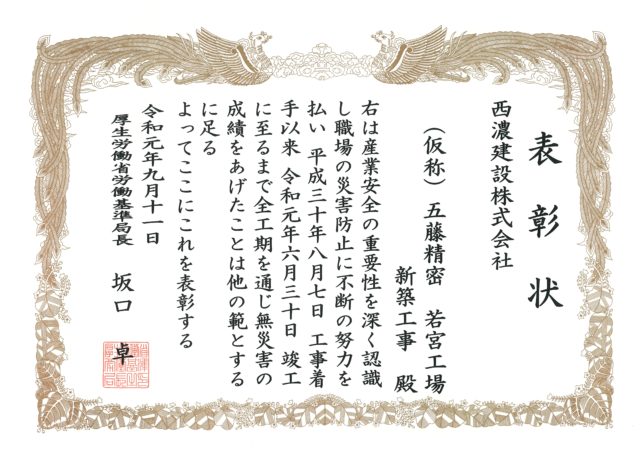 表彰状
西濃建設株式会社
(仮称) 五藤精密 若宮工場
新築工事 殿
右は産業安全の重要性を深く認識
し職場の災害防止に不断の努力を
払い 平成三十年八月七日 工事着
手以来 令和元年六月三十日 竣工
に至るまで全工期を通じ無災害の
成績をあげたことは他の範とする
に足る
よってここにこれを表彰する
令和元年九月十一日
厚生労働省労働基準局長 坂口 卓